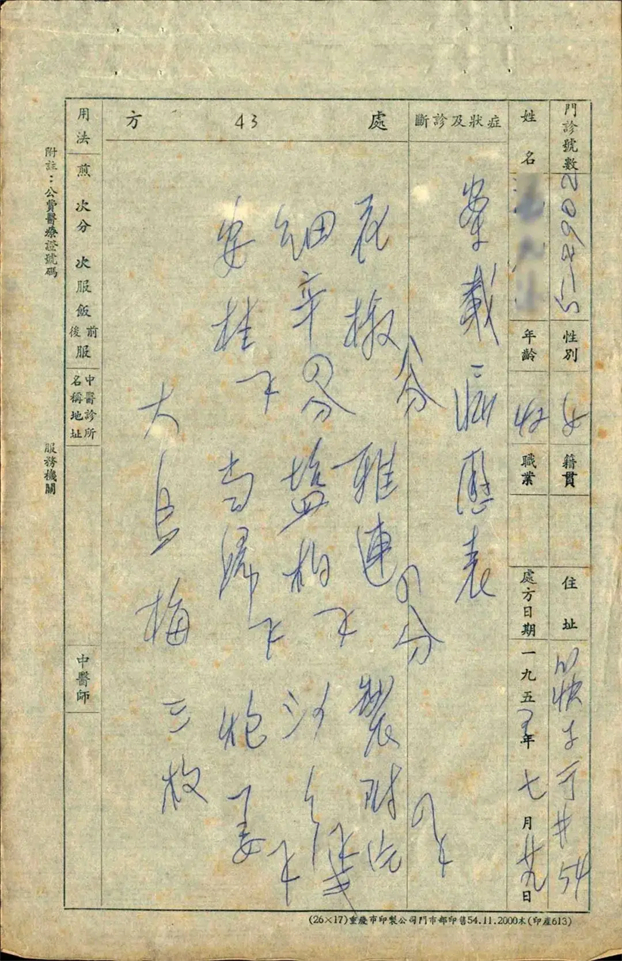 門診號數 性別 女 籍貫 住址 54
姓名 年齡 職業 處方日期 一九五 年 七月廿九日
症狀及診斷
案載病歷表
處 43 方
花椒 八分 雅連 分 製附片
細辛 分 塩柏 沙
安桂 當歸 炮姜
大烏梅 三枚
用法 煎 次分 次服飯前後服
中醫診所名稱地址 中醫師
附註：公費醫療證號碼 服務機關
(26×17)重慶市印製公司門市部印售54.11.2000本(印產613)